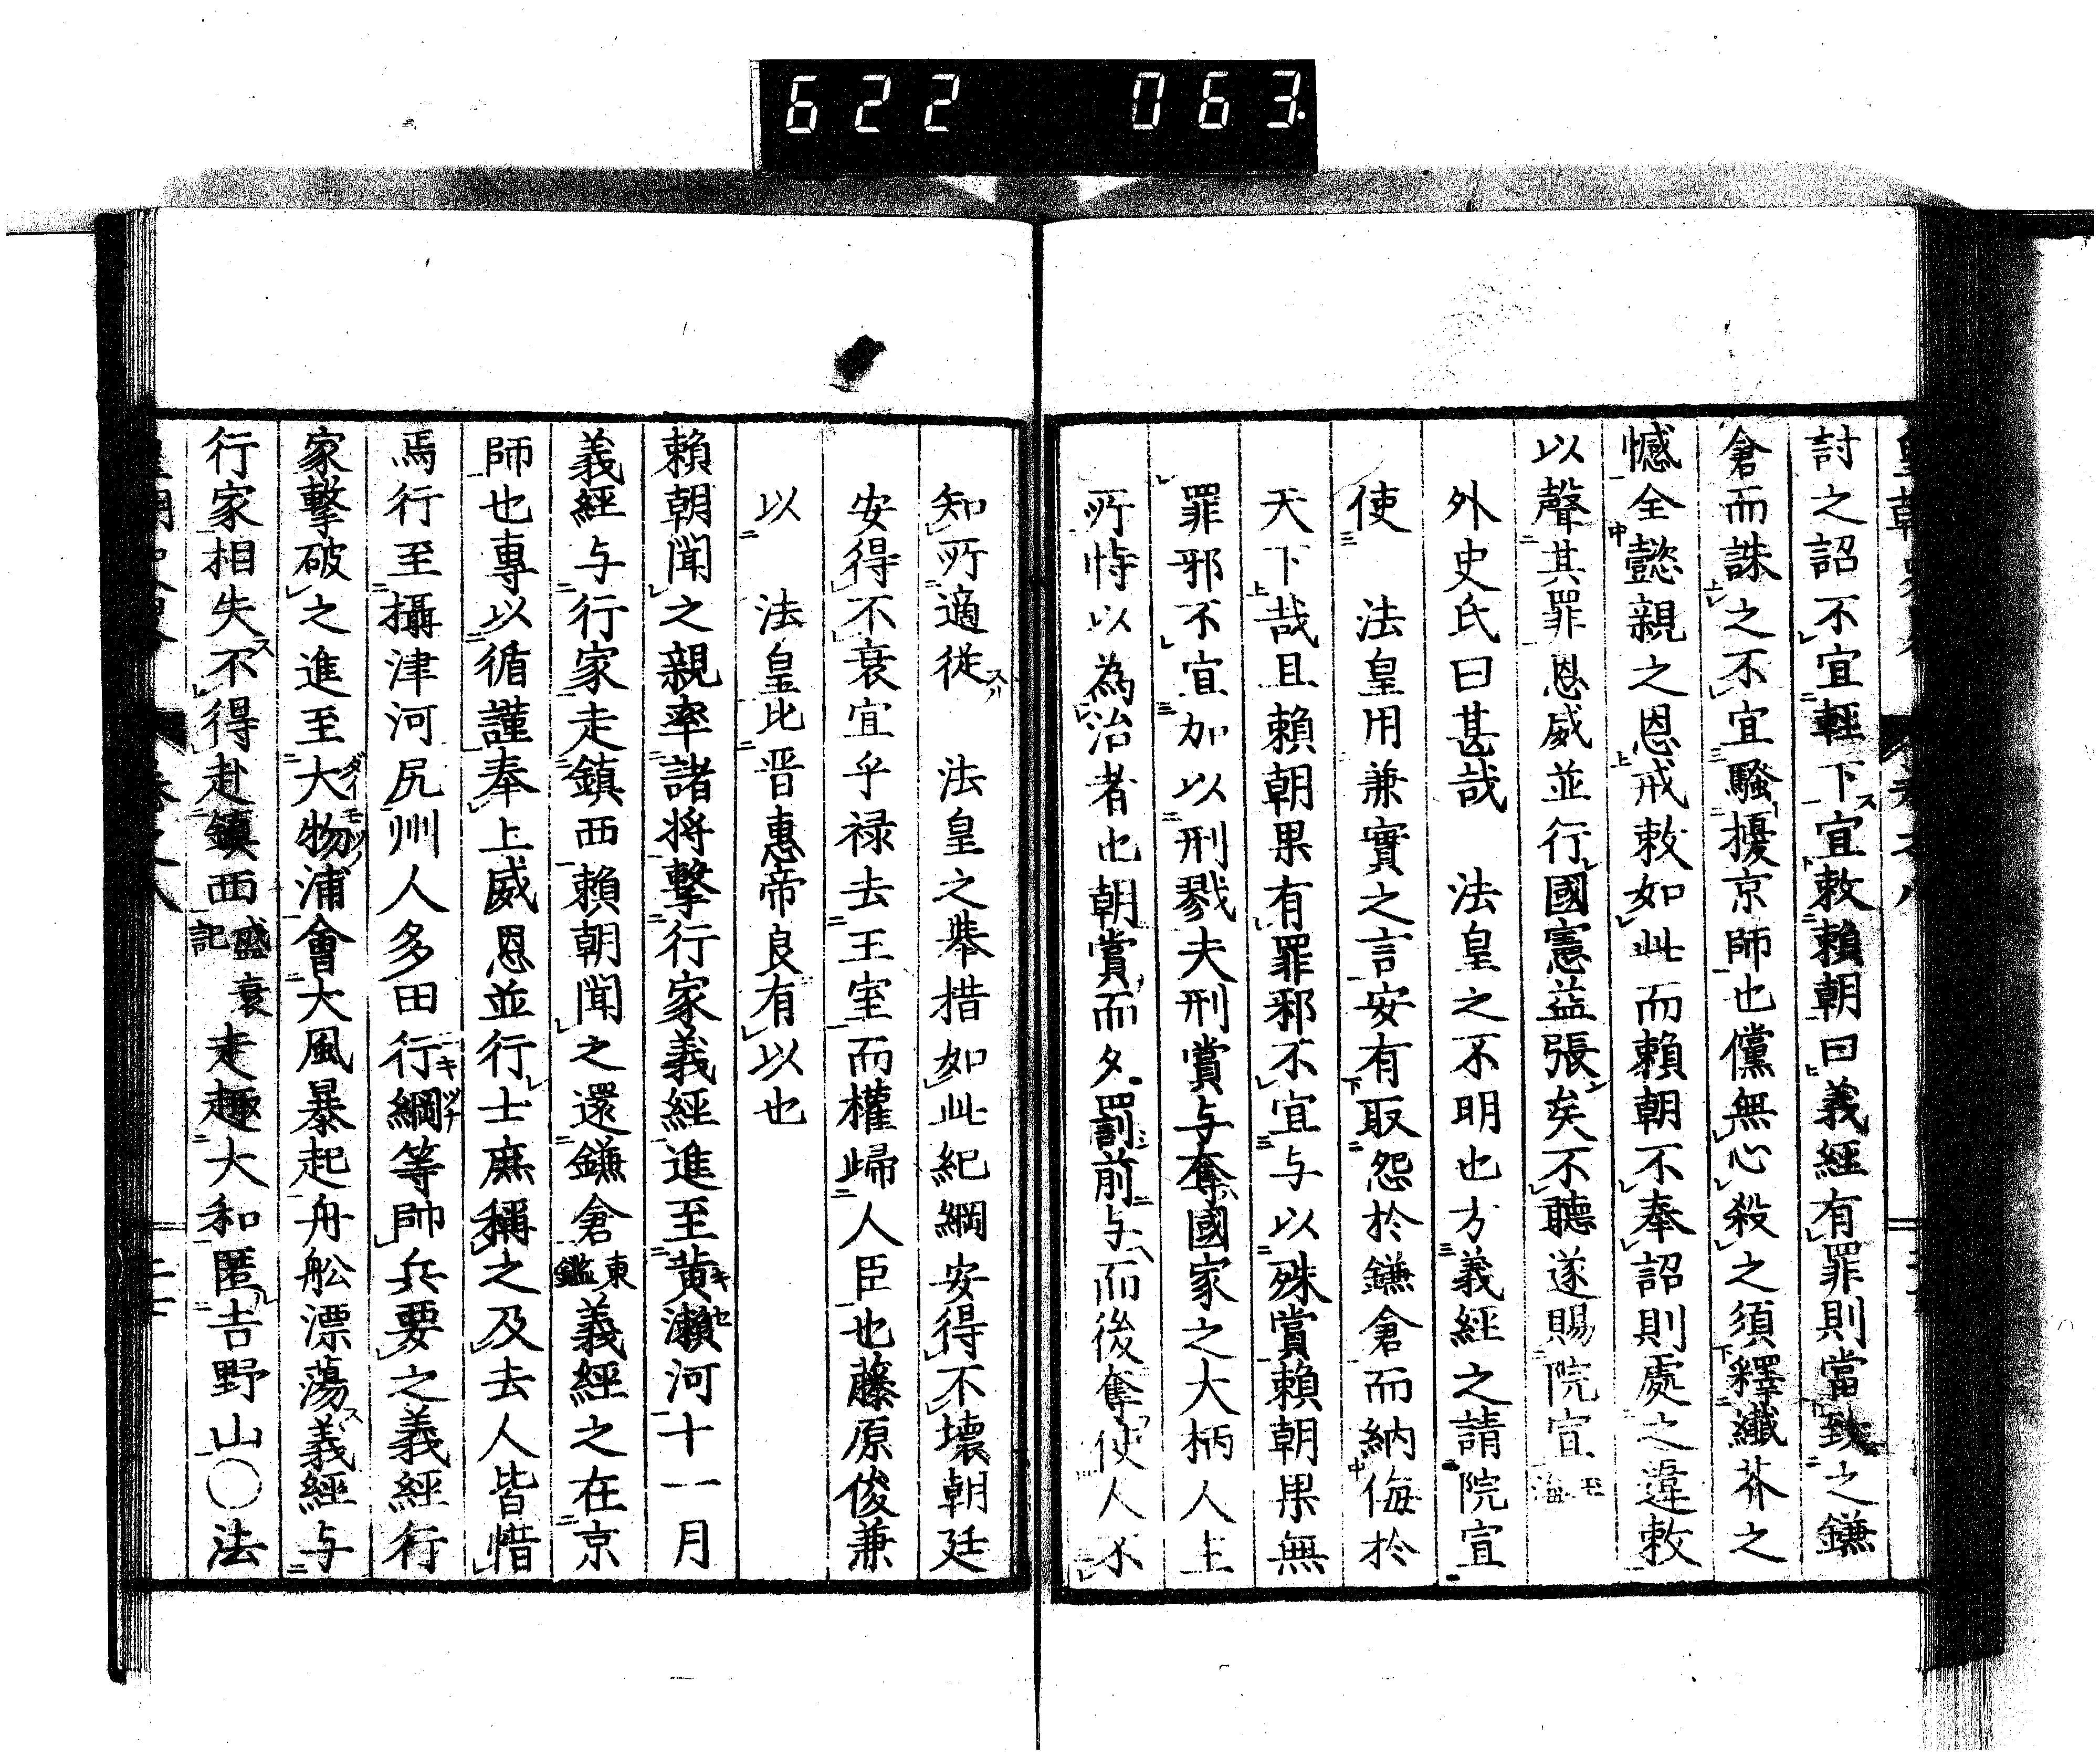 622 063
討之詔不宜輕下宜敕賴朝曰義經有罪則當致之鎌
倉而誅之不宜騷擾京師也儻無心殺之須釋纖芥之
憾全懿親之恩戒敕如此而賴朝不奉詔則處之違敕
以聲其罪恩威並行國憲益張矣不聽遂賜院宣玉海
外史氏曰甚哉　法皇之不明也方義經之請院宣
使　法皇用兼實之言安有取怨於鎌倉而納侮於
天下哉且賴朝果有罪邪不宜与以殊賞賴朝果無
罪邪不宜加以刑戮夫刑賞与奪國家之大柄人主
所恃以為治者也朝賞而夕罰前与而後奪使人不
知所適從　法皇之舉措如此紀綱安得不壞朝廷
安得不衰宜乎禄去王室而權歸人臣也藤原俊兼
以　法皇比晋惠帝良有以也
賴朝聞之親率諸将擊行家義經進至黄瀬河十一月
義經与行家走鎮西賴朝聞之還鎌倉東鑑義經之在京
師也專以循謹奉上威恩並行士庶稱之及去人皆惜
焉行至攝津河尻州人多田行綱等帥兵要之義經行
家擊破之進至大物浦會大風暴起舟舩漂蕩義經与
行家相失不得赴鎮西盛衰記走趣大和匿吉野山〇法